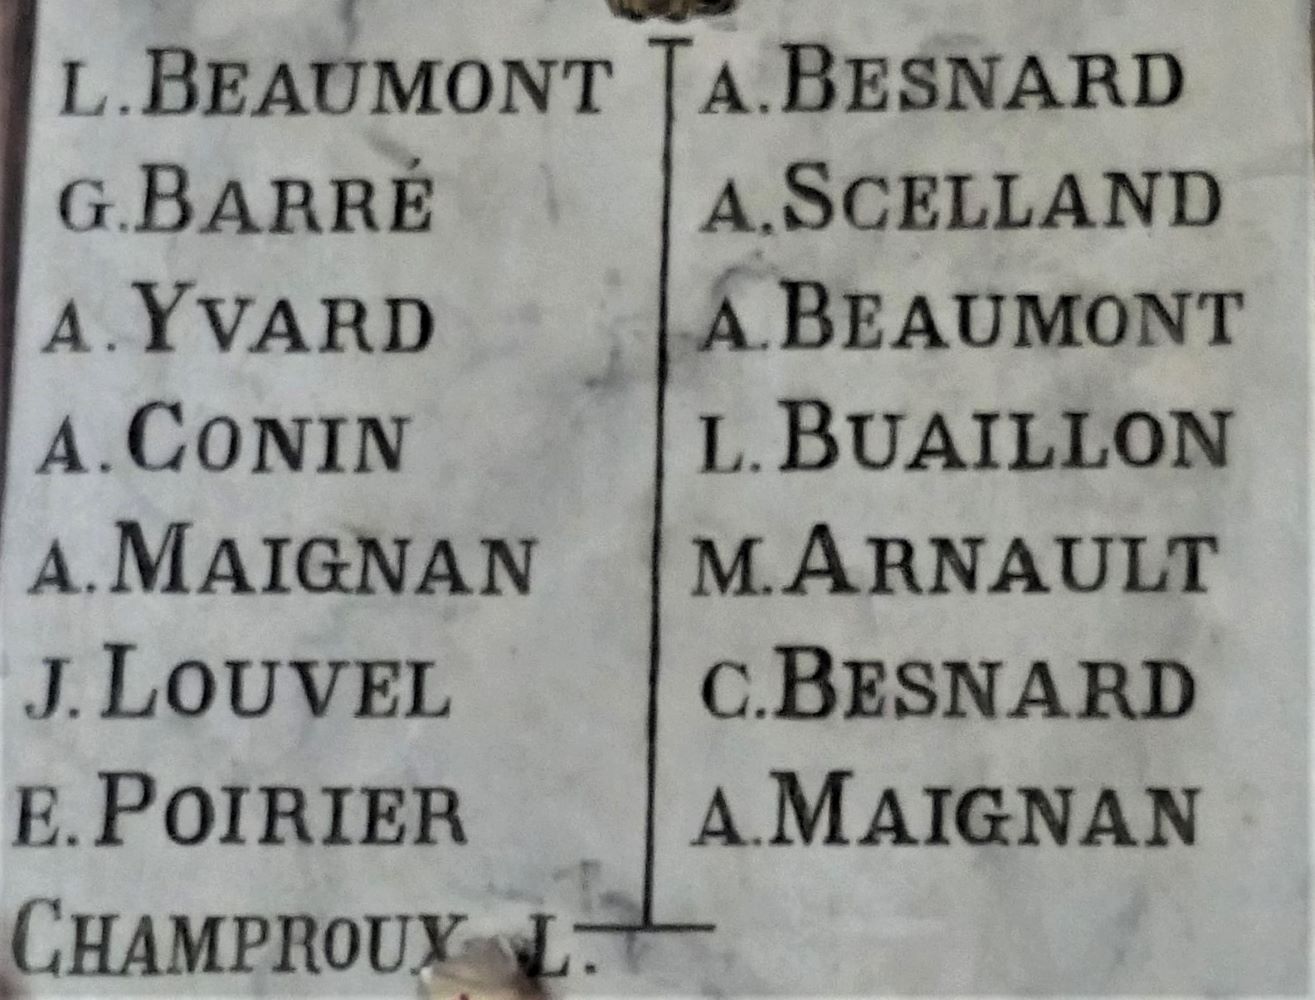 L. BEAUMONT
G. BARRÉ
A. YVARD
A. CONIN
A. MAIGNAN
J. LOUVEL
E. POIRIER
CHAMPROUX L.
A. BESNARD
A. SCELLAND
A. BEAUMONT
L. BUAILLON
M. ARNAULT
C. BESNARD
A. MAIGNAN